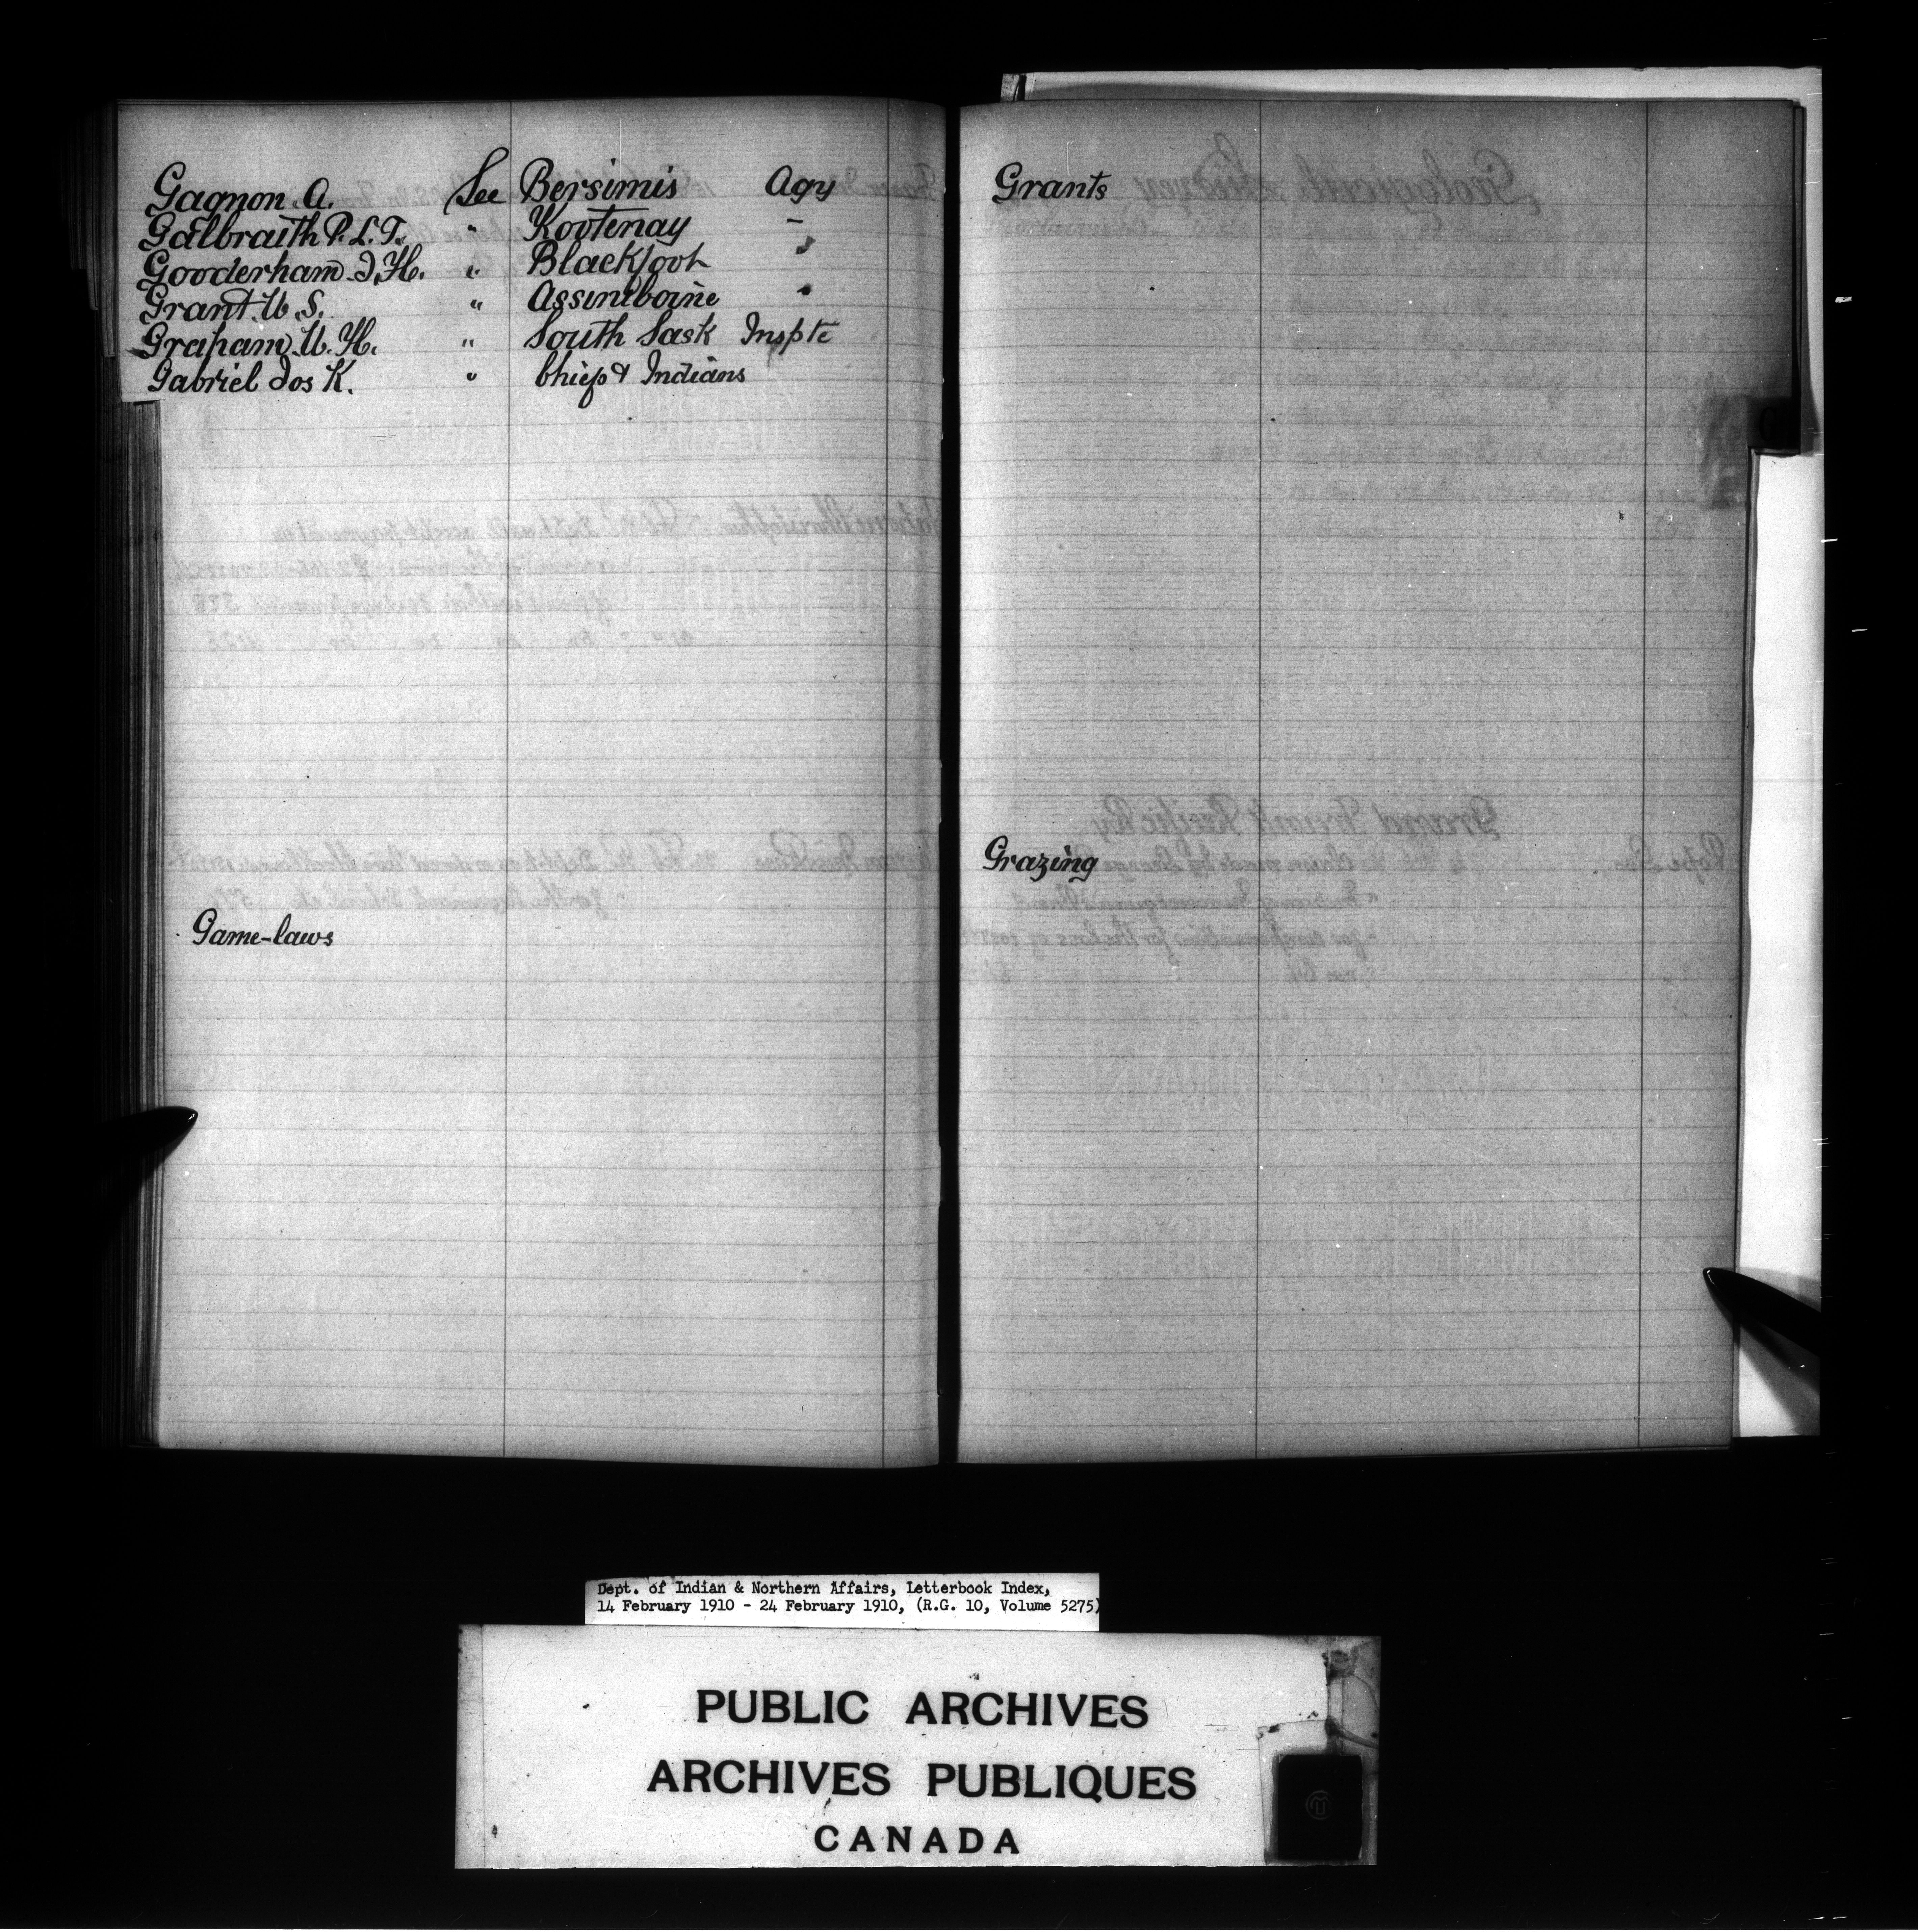 Gagnon. A. See Bersimis Agy
Galbraith P. L. T. " Kootenay -
Gooderham J. H. " Blackfoot "
Grant W. S. " Assiniboine "
Graham W. H. " South Sask Inspte
Gabriel Jos K. " Chiefs & Indians
Game-laws
Grants
Grazing
Dept. of Indian & Northern Affairs, Letterbook Index,
14 February 1910 - 24 February 1910, (R.G. 10, Volume 5275)
PUBLIC ARCHIVES
ARCHIVES PUBLIQUES
CANADA